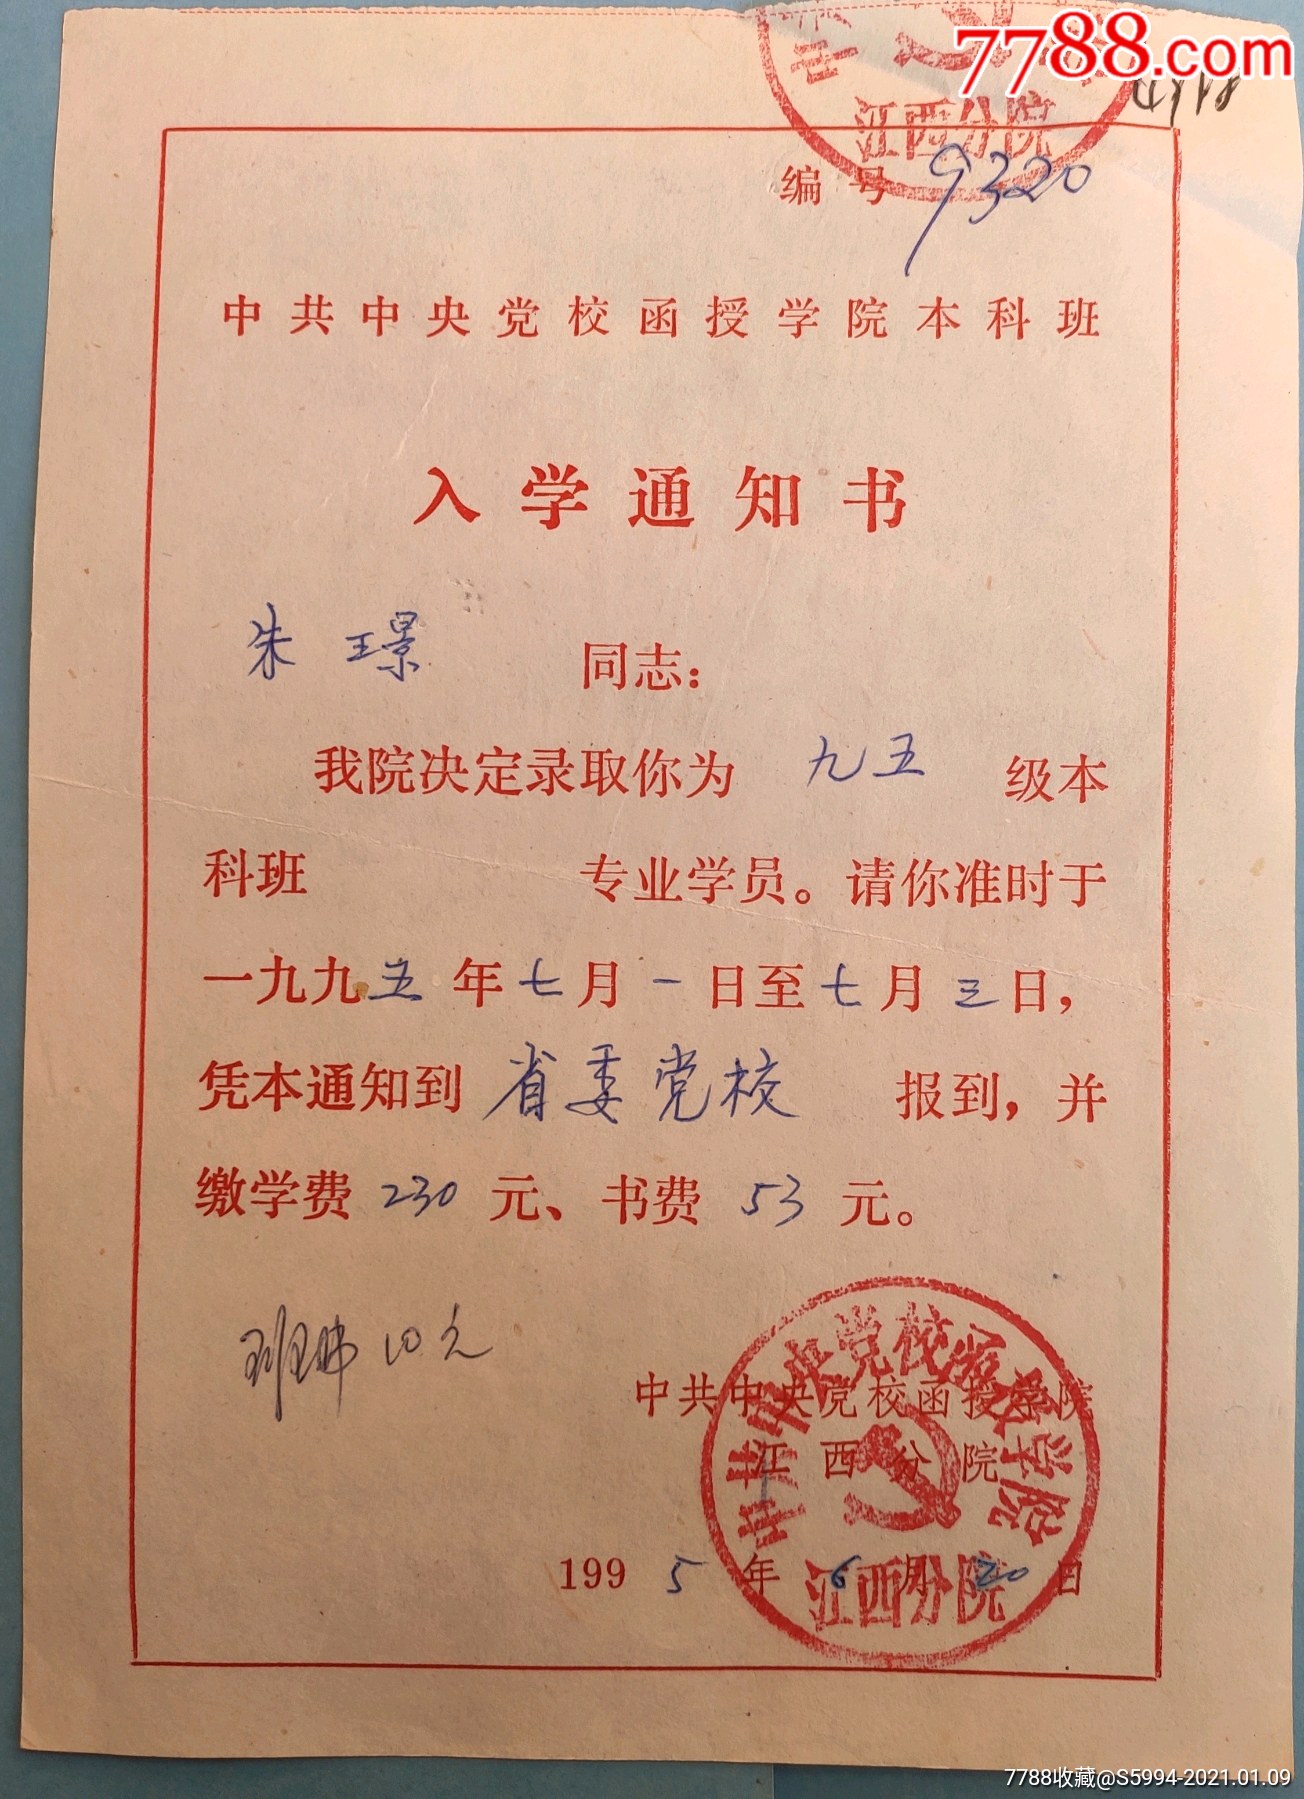 7788.com
江西分院
编号 9320
中共中央党校函授学院本科班
入学通知书
朱璟 同志：
我院决定录取你为 九五 级本
科班 专业学员。请你准时于
一九九五年七月一日至七月三日，
凭本通知到 省委党校 报到，并
缴学费 230 元、书费 53 元。
10元
中共中央党校函授学院
江西分院
1995年6月20日
中共中央党校函授学院
江西分院
7788收藏@S5994-2021.01.09